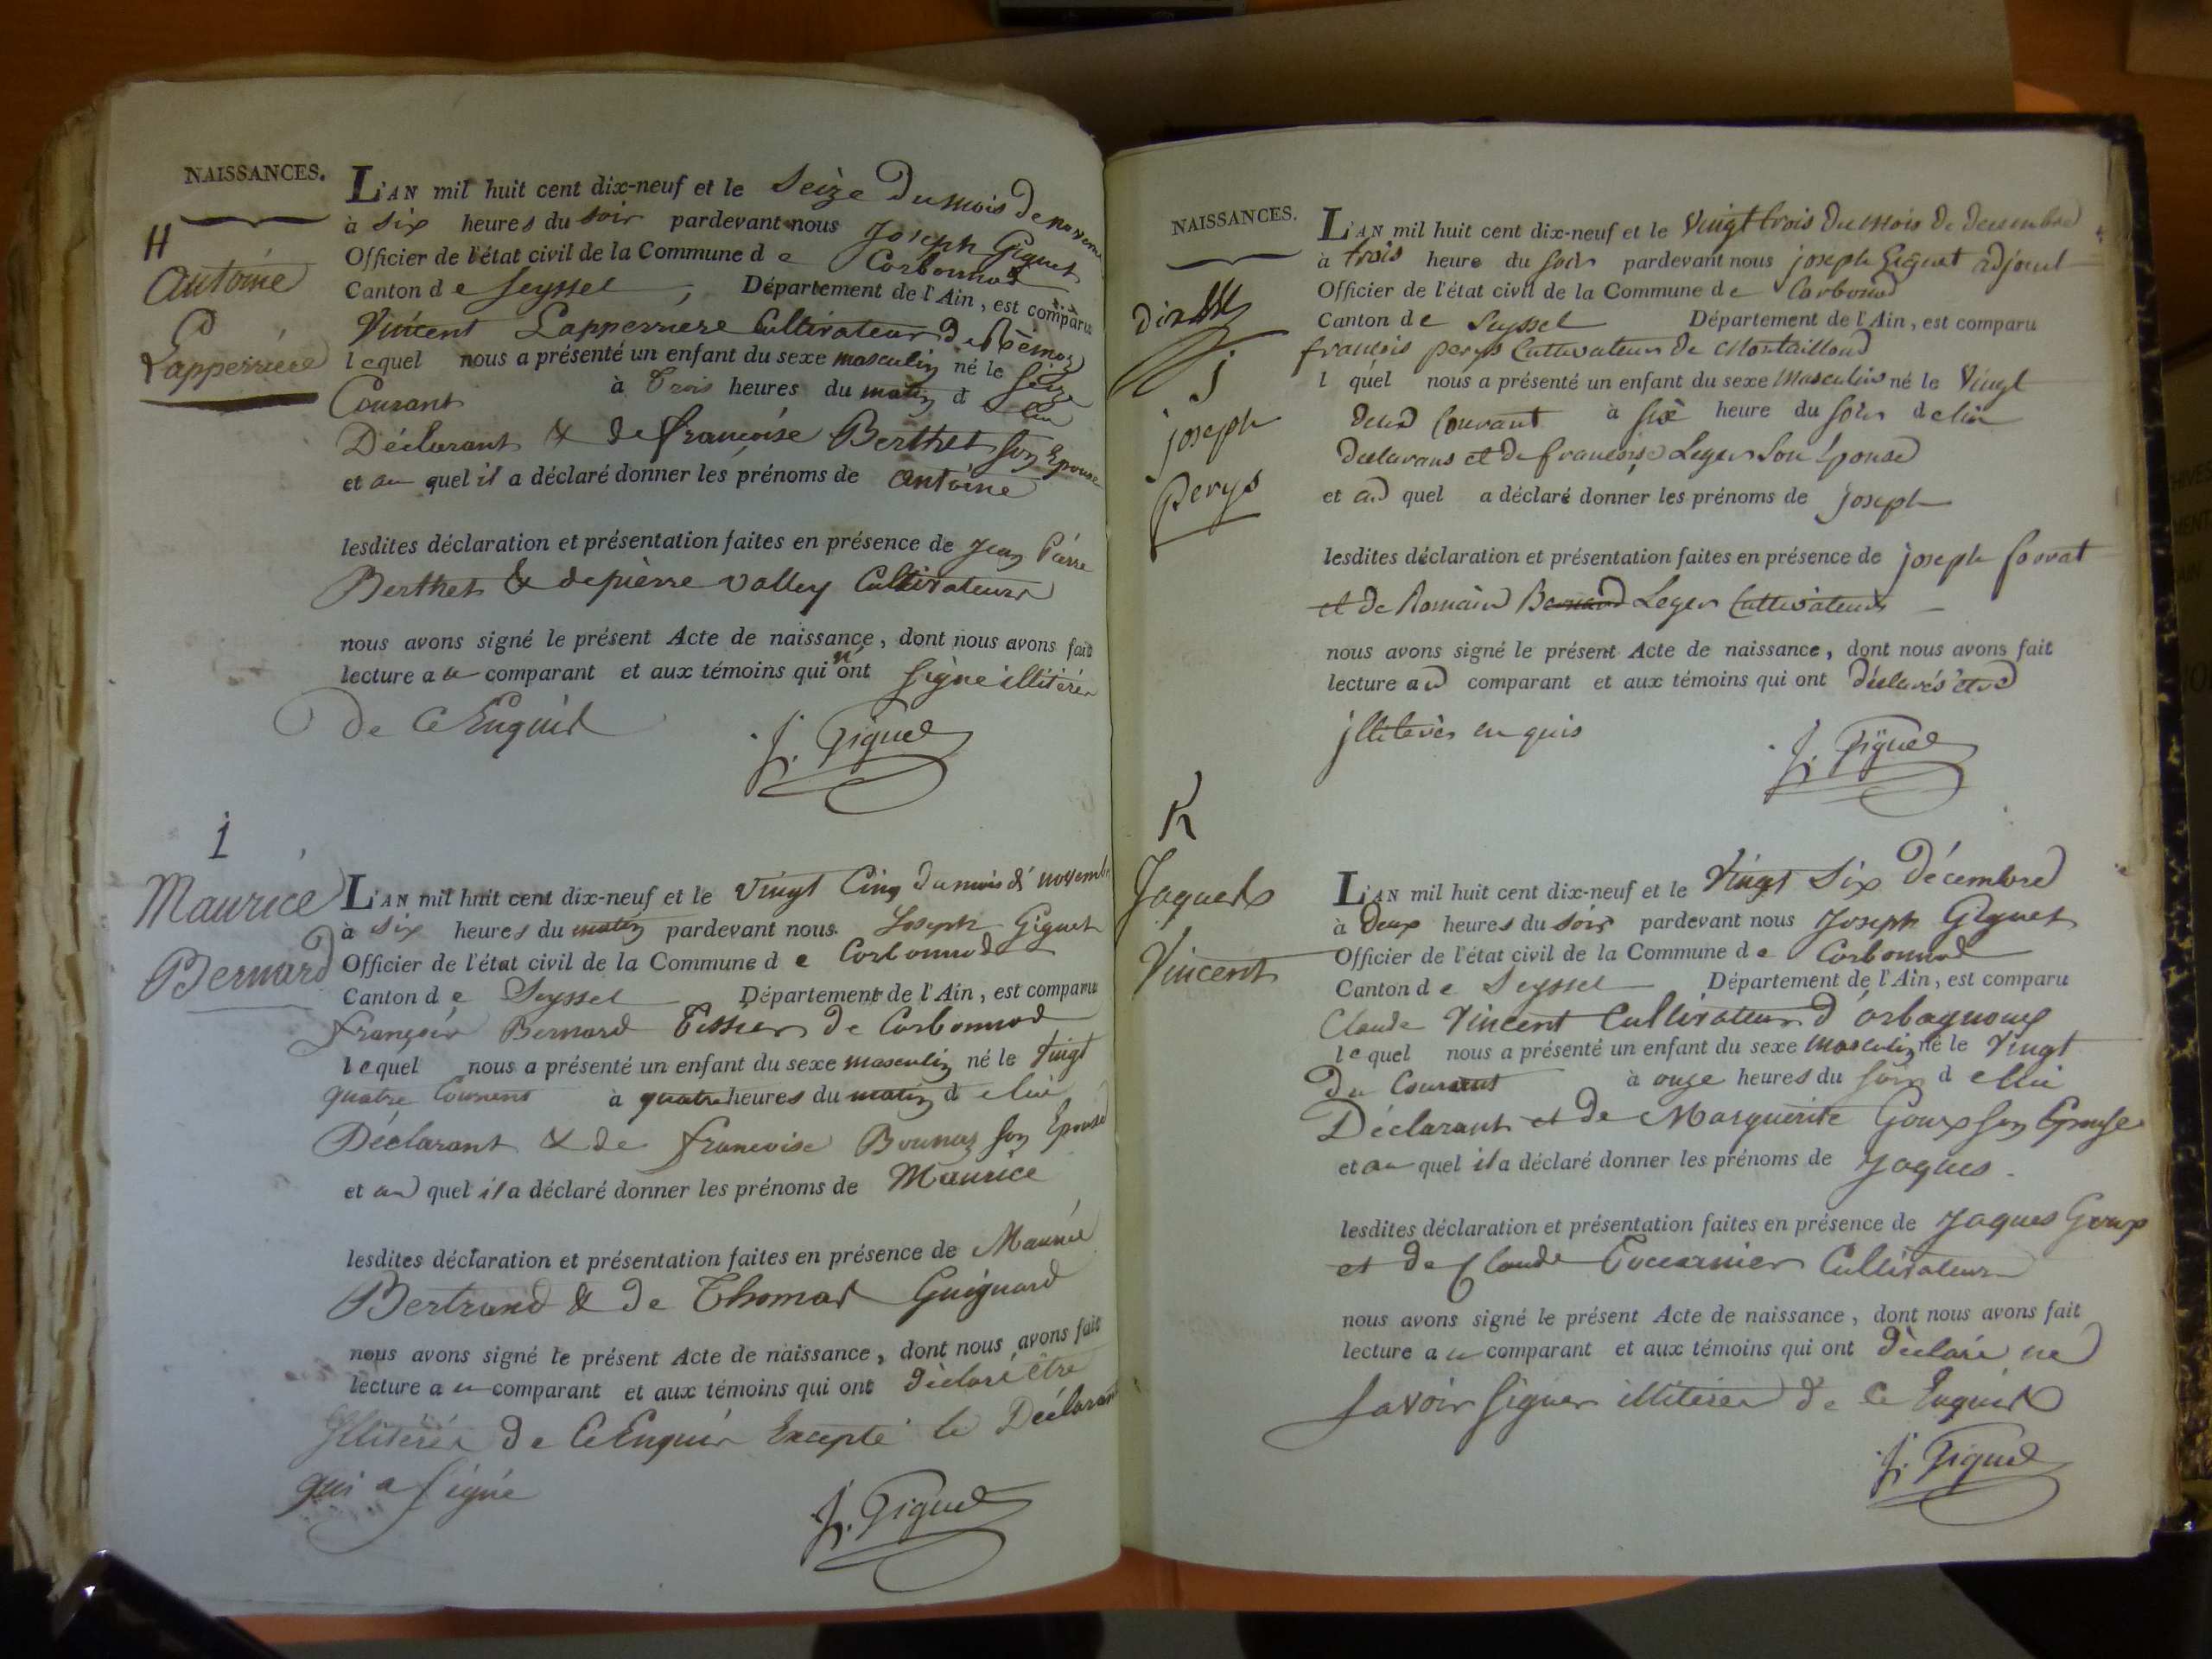 NAISSANCES.
H
Antoine
Lapperriére
L'AN mil huit cent dix-neuf et le Seize du mois de novem
à six heures du soir pardevant nous Joseph Giguet
Officier de l'état civil de la Commune d e Corbonnod
Canton d e Seyssel, Département de l'Ain, est comparu
Vincent Lapperriere Cultivateur de
lequel nous a présenté un enfant du sexe masculin né le seize
Courant à Trois heures du matin d e lui
Déclarant & de françoise Berthet son Epouse
et au quel il a déclaré donner les prénoms de Antoine
lesdites déclaration et présentation faites en présence de Jean Piérre
Berthet & de pierre Valley Cultivateurs
nous avons signé le présent Acte de naissance, dont nous avons fait
lecture a u comparant et aux témoins qui n'ont signé illitérés
De Ce Enquis
J. Giguet
I
Maurice
Bernard
L'AN mil huit cent dix-neuf et le Vingt Cinq du mois de novemb
à six heures du matin pardevant nous Joseph Giguet
Officier de l'état civil de la Commune d e Corbonnod
Canton d e Seyssel Département de l'Ain, est comparu
françois Bernard Tissier de Corbonnod
lequel nous a présenté un enfant du sexe masculin né le vingt
quatre Courant à quatre heures du matin d e lui
Déclarant & de francoise son Epouse
et au quel il a déclaré donner les prénoms de Maurice
lesdites déclaration et présentation faites en présence de Maurice
Bertrand & de Thomas Guignard
nous avons signé le présent Acte de naissance, dont nous avons fait
lecture a u comparant et aux témoins qui ont Déclaré être
Illitérés De Ce Enquis Excepté le Déclarant
qui a signé
J. Giguet
NAISSANCES.
J
joseph
perys
L'AN mil huit cent dix-neuf et le Vingt trois du mois de decembre
à trois heure du soir pardevant nous joseph Giguet adjoint
Officier de l'état civil de la Commune de Corbonod
Canton de Seyssel Département de l'Ain, est comparu
françois perys Cultivateur de Montailloud
l quel nous a présenté un enfant du sexe masculin né le Vingt
deux Courant à six heure du soir de lui
declarans et de francoise Leger son Epouse
et au quel a déclaré donner les prénoms de joseph
lesdites déclaration et présentation faites en présence de joseph
et de Romain Bernard Leger Cultivateurs
nous avons signé le présent Acte de naissance, dont nous avons fait
lecture au comparant et aux témoins qui ont déclarés etre
jlliterés enquis
J. Giguet
K
Jaques
Vincent
L'AN mil huit cent dix-neuf et le Vingt Six Décembre
à Deux heures du soir pardevant nous Joseph Giguet
Officier de l'état civil de la Commune d e Corbonnod
Canton d e Seyssel Département de l'Ain, est comparu
Claude Vincent Cultivateur d'orbagnoux
lequel nous a présenté un enfant du sexe masculin né le Vingt
Du Courant à onze heures du soir d e lui
Déclarant et de Marguerite Goux son Epouse
et au quel il a déclaré donner les prénoms de Jaques.
lesdites déclaration et présentation faites en présence de Jaques Goux
et de Claude Cultivateurs
nous avons signé le présent Acte de naissance, dont nous avons fait
lecture a u comparant et aux témoins qui ont Déclaré ne
savoir signer illitérés de Ce Enquis
J. Giguet